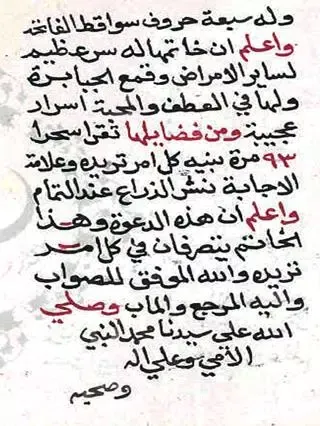 وله سبعة حروف سواقط الفاتحة
واعلم ان خاتمها له سر عظيم
لساير الامراض وقمع الجبابرة
ولها في العطف والمحبة اسرار
عجيبة ومن فضايلها تقرا سحرا
٩٣ مرة بنية كل امر تريده وعلامة
الاجابة نشر الذراع عند التمام
واعلم ان هذه الدعوة وهذا
الخاتم يتصرفان في كل امر
تريده والله الموفق للصواب
واليه المرجع والماب وصلي
الله علي سيدنا محمد النبي
الأمي وعلي اله
وصحبه